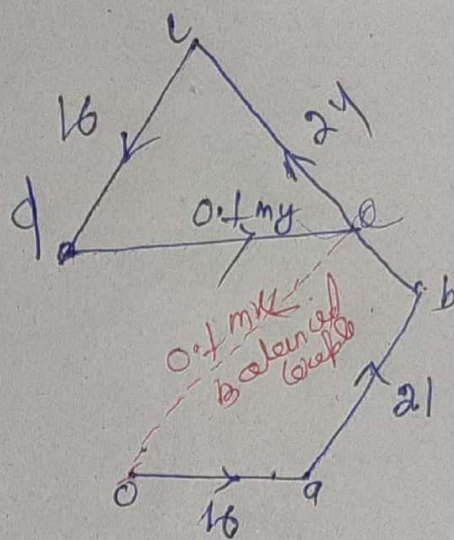 c
16
24
d
0.1 my
e
b
0.1 mx
Balanced
couple
21
0
a
16